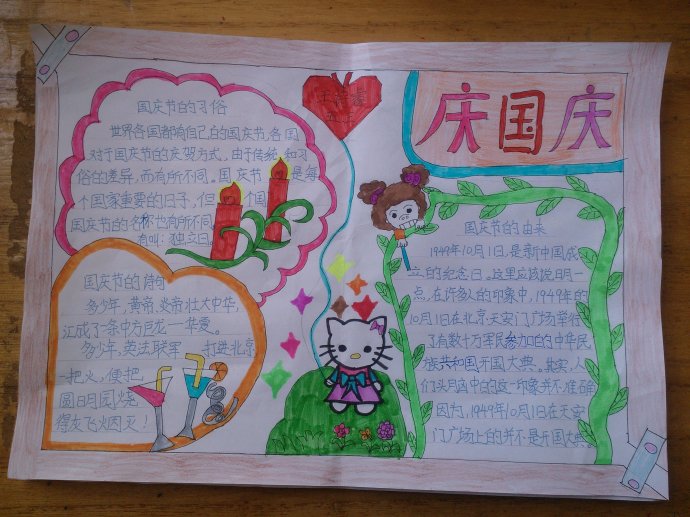 庆国庆
国庆节的习俗
世界各国都有自己的国庆节,各国
对于国庆节的庆祝方式,由于传统和习
俗的差异,而有所不同。国庆节是每
个国家重要的日子,但个国
国庆节的名称也有所不同
有叫:独立日
国庆节的诗句
多少年,黄帝、炎帝壮大中华,
汇成了一条中方巨龙一华爱。
多少年,英法联军打进北京,
一把火,便把
圆明园烧
得灰飞火灭!
国庆节的由来
1949年10月1日,是新中国成
立的纪念日。这里应该说明一
点,在许多人的印象中,1949年的
10月1日在北京天安门广场举行
了有数十万军民参加的中华民
族共和国开国大典。其实,人
们头目中的这一印象并不准确
因为,1949年10月1日在天安
门广场上的并不是开国大典